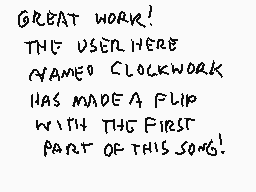 GREAT WORK!
THE USER HERE
NAMED CLOCKWORK
HAS MADE A FLIP
WITH THE FIRST
PART OF THIS SONG!